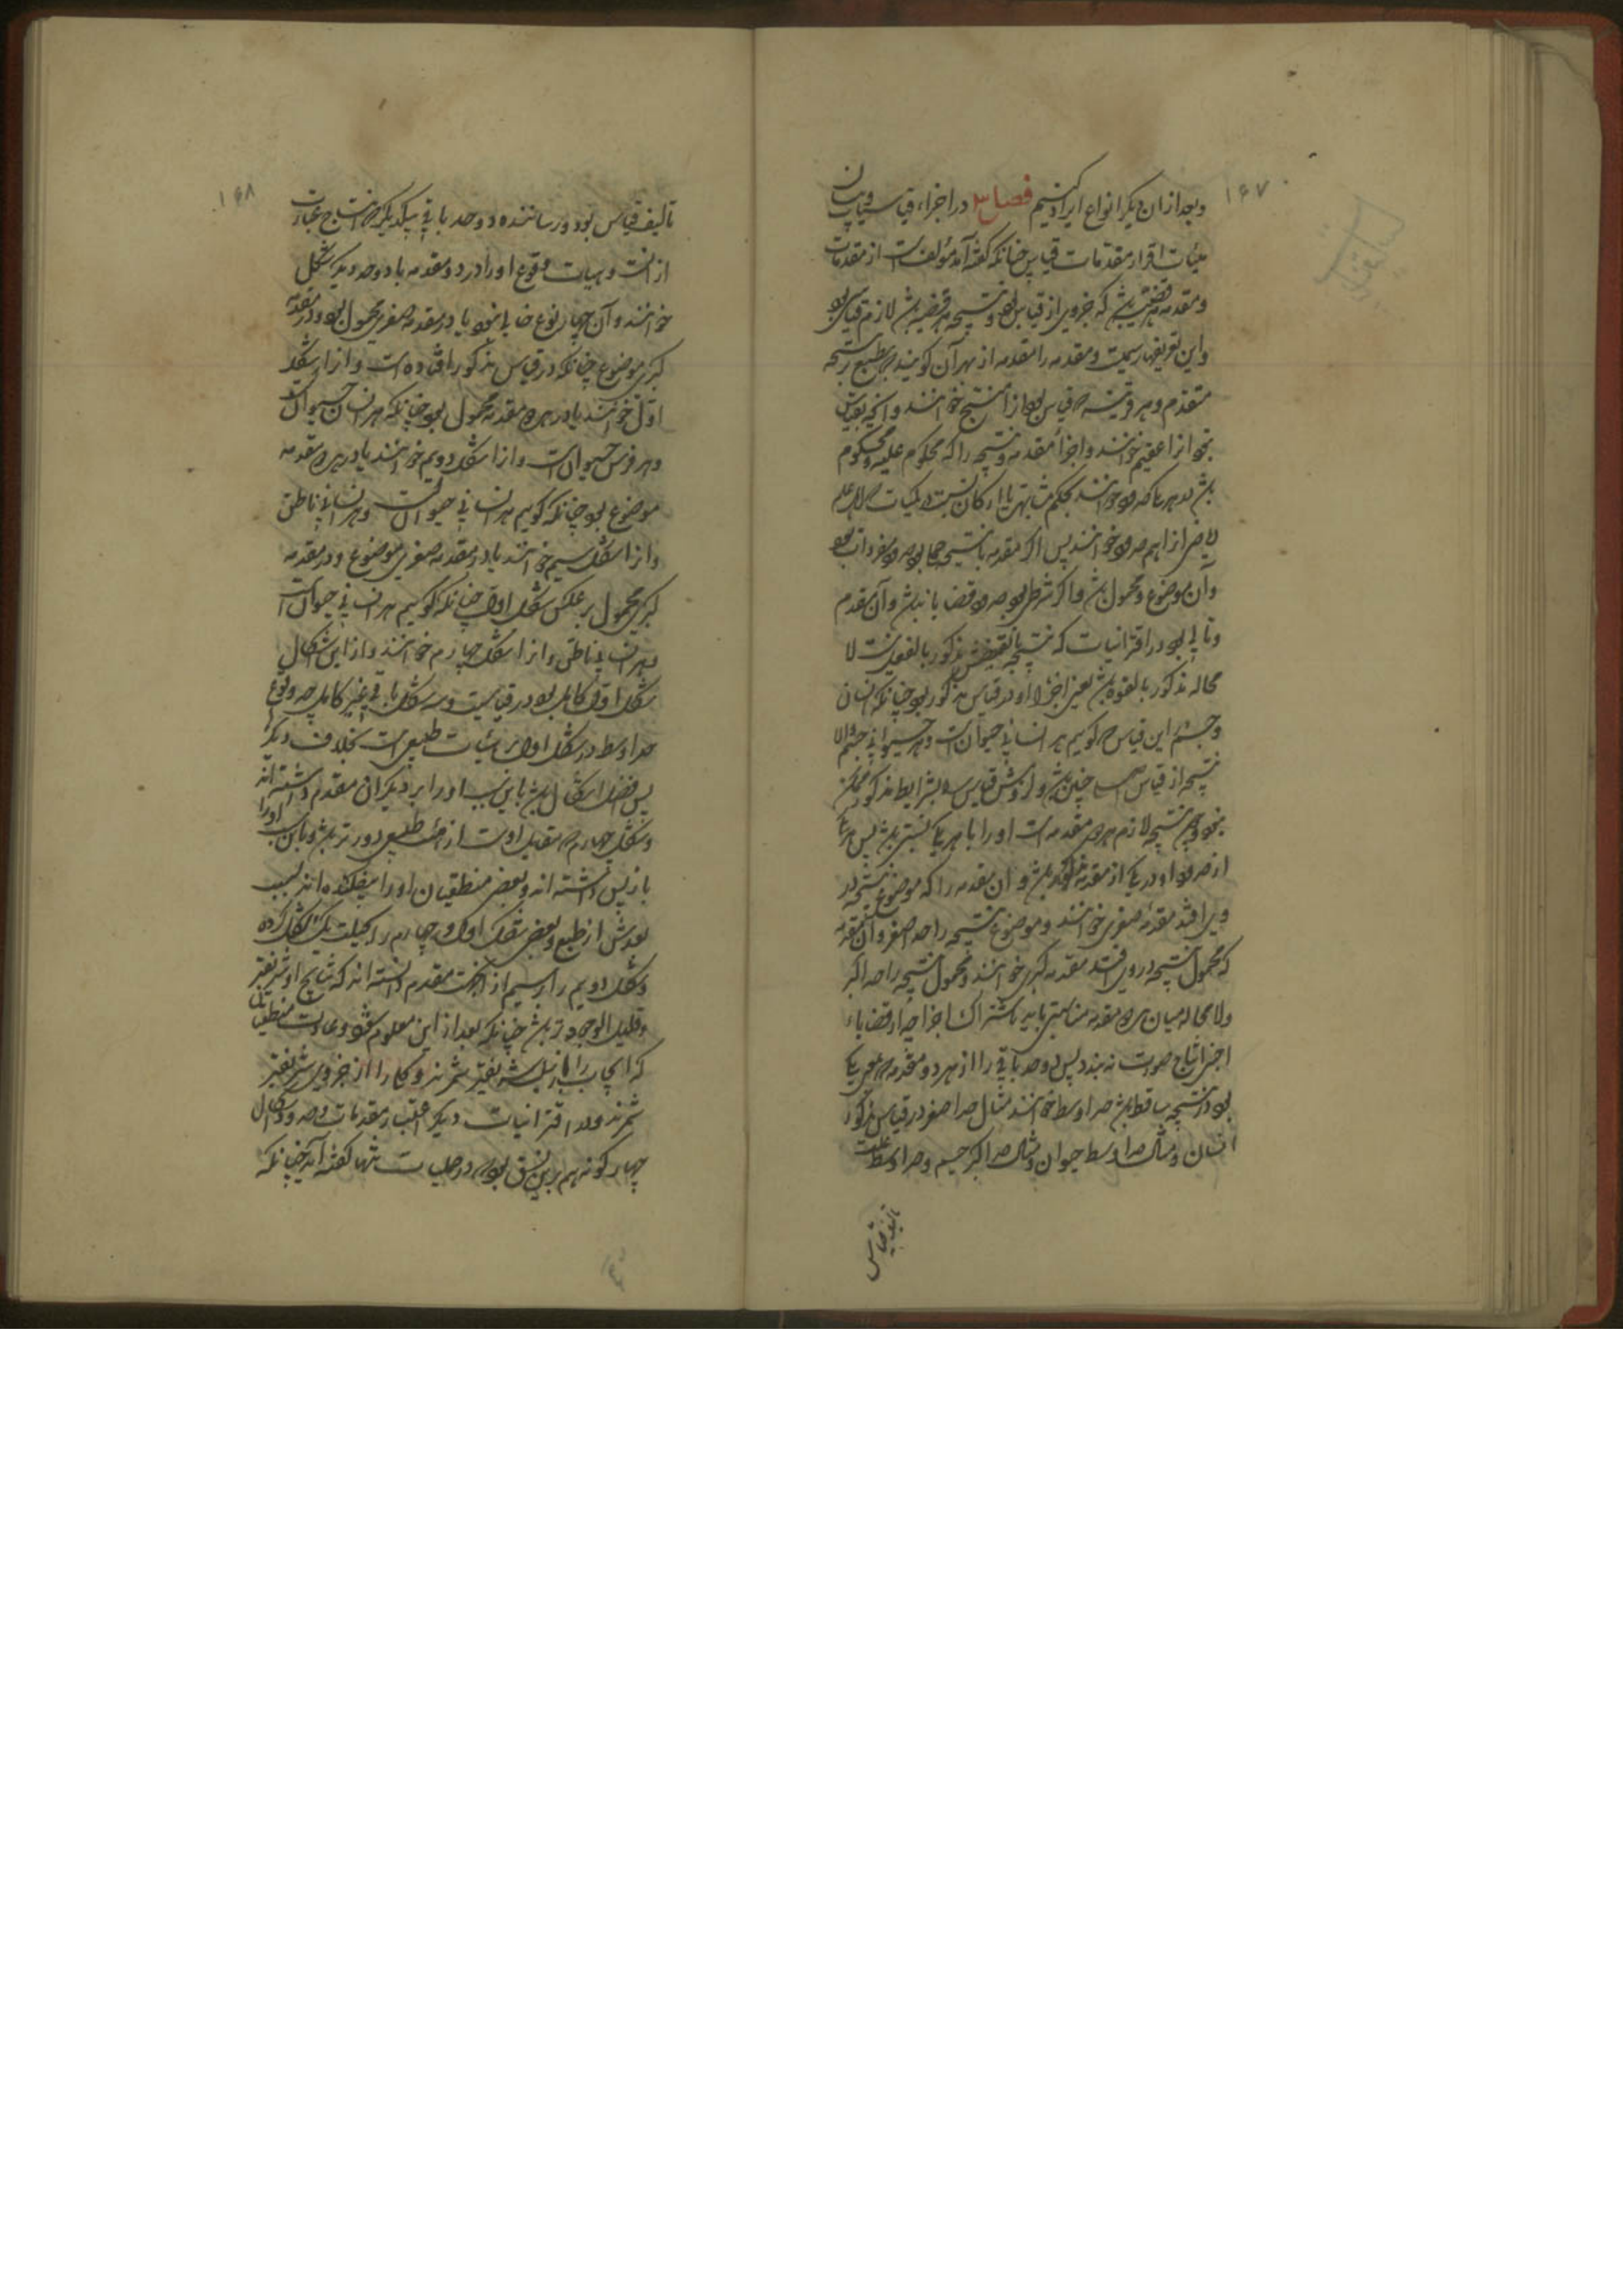 ۱۶۷
وبعد ازان دیگر انواع ایراد کنیم فصل ۳ در اجزاء قیاسیات وبیان
هیئات اقرار مقدمات قیاس چنانکه گفته آمد مؤلفست از مقدمات
ومقدمه قضیتی باشد که جزوی از قیاس بود ونتیجه هر قضیه باشد لازم قیاسی بود
واین تعریفها رسمیست ومقدمه را مقدمه از بهر آن گویند که بطبع بر نتیجه
متقدم وهر قرینه که قیاس بود آنرا منتج خوانند وآنچه قیاس
نبود آنرا عقیم خوانند واجزاء مقدمه ونتیجه را که محکوم علیه ومحکوم به
باشد هر یک حدی خوانند بحکم مشابهت با ارکان نسبت در کمیات که اهل علم
ریاضی آنرا هم حدود خوانند پس اگر مقدمه یا نتیجه حملی بود حدود مفردات بود
وآن موضوع ومحمول باشد واگر شرطی بود حدود قضایا باشد وآن مقدم
وتالی بود در اقترانیات که نتیجه یا نقیضش مذکور بالفعل نیست لا
محاله مذکور بالقوه باشد یعنی اجزاء او در قیاس مذکور بود چنانکه انسان
وجسم در این قیاس که گوییم هر انسانی حیوانست وهر حیوانی جسم والا
نتیجه از قیاس حاصل چنین باشد و از وضع قیاس بشرایط مذکور ممکن
نبود وچون نتیجه لازم هر دو مقدمه است او را با هر یک نسبتی باشد پس هر یک
از حدود او در یکی از مقدمه مذکور باشد و آن مقدمه را که موضوع نتیجه در
وی افتد مقدمه صغری خوانند وموضوع نتیجه را حد اصغر وآن مقدمه
که محمول نتیجه در وی افتد مقدمه کبری خوانند ومحمول نتیجه را حد اکبر
ولا محاله میان هر دو مقدمه مناسبتی باید باشتراک اجزا چه از قضایاء
اجنبی انتاج صورت نبندد پس دو حد باقی را از هر دو مقدمه معنی یکی
بود ودر نتیجه ساقط باشد حد اوسط خوانند مثال حد اصغر در قیاس مذکور
انسان ومثال حد اوسط حیوان ومثال حد اکبر جسم وحد اوسط علت
تالیف قیاس
۱۶۸
تالیف قیاس بود ورساننده دو حد باقی بیکدیگر که انتاج عبارت
ازانست وهیات وقوع او را در دو مقدمه با دو حد دیگر شکل
خوانند وآن چهار نوع خالی نبود یا در مقدمه صغری محمول بود ودر مقدمه
کبری موضوع چنانکه در قیاس مذکور افتاده است وآنرا شکل
اول خوانند یا در هر دو مقدمه محمول بود چنانکه هر انسان حیوانست
وهر فرس حیوانست وآنرا شکل دویم خوانند یا در هر دو مقدمه
موضوع بود چنانکه گوییم هر انسانی حیوانست وهر انسانی ناطق
وآنرا شکل سیم خوانند یا در مقدمه صغری موضوع ودر مقدمه
کبری محمول بر عکس شکل اول چنانکه گوییم هر انسانی حیوانست
وهر انسانی ناطق وآنرا شکل چهارم خوانند وازاین اشکال
شکل اول کامل بود در قیاسیت وسه شکل باقی غیر کامل چه وقوع
حد اوسط در شکل اول بر هیئات طبیعی است بخلاف دیگرها
پس افضل اشکال باشد باین سبب او را بر دیگران مقدم داشته اند
وشکل چهارم که مقابل اوست از هیئت طبیعی دورتر باشد وباین سبب او را
بازپس داشته اند وبعضی منطقیان او را بیفکنده اند بسبب
بعدش از طبع وبعضی شکل اول وچهارم را بحیلت یک شکل کرده
وشکل دویم را بر سیم از آنجهت مقدم داشته اند که نتایج او شریفتر
وقلیل الوجودتر باشد چنانکه بعد از این معلوم شود وعادت منطقیان
که ایجاب را از سلب شریفتر شمرند وکلی را از جزوی شریفتر
شمرند ودر اقترانیات دیگر اعتبار مقدمات وحدود واشکال
چهارگونه هم برین نسق بود که در حملیات تنها گفته آمد چنانکه